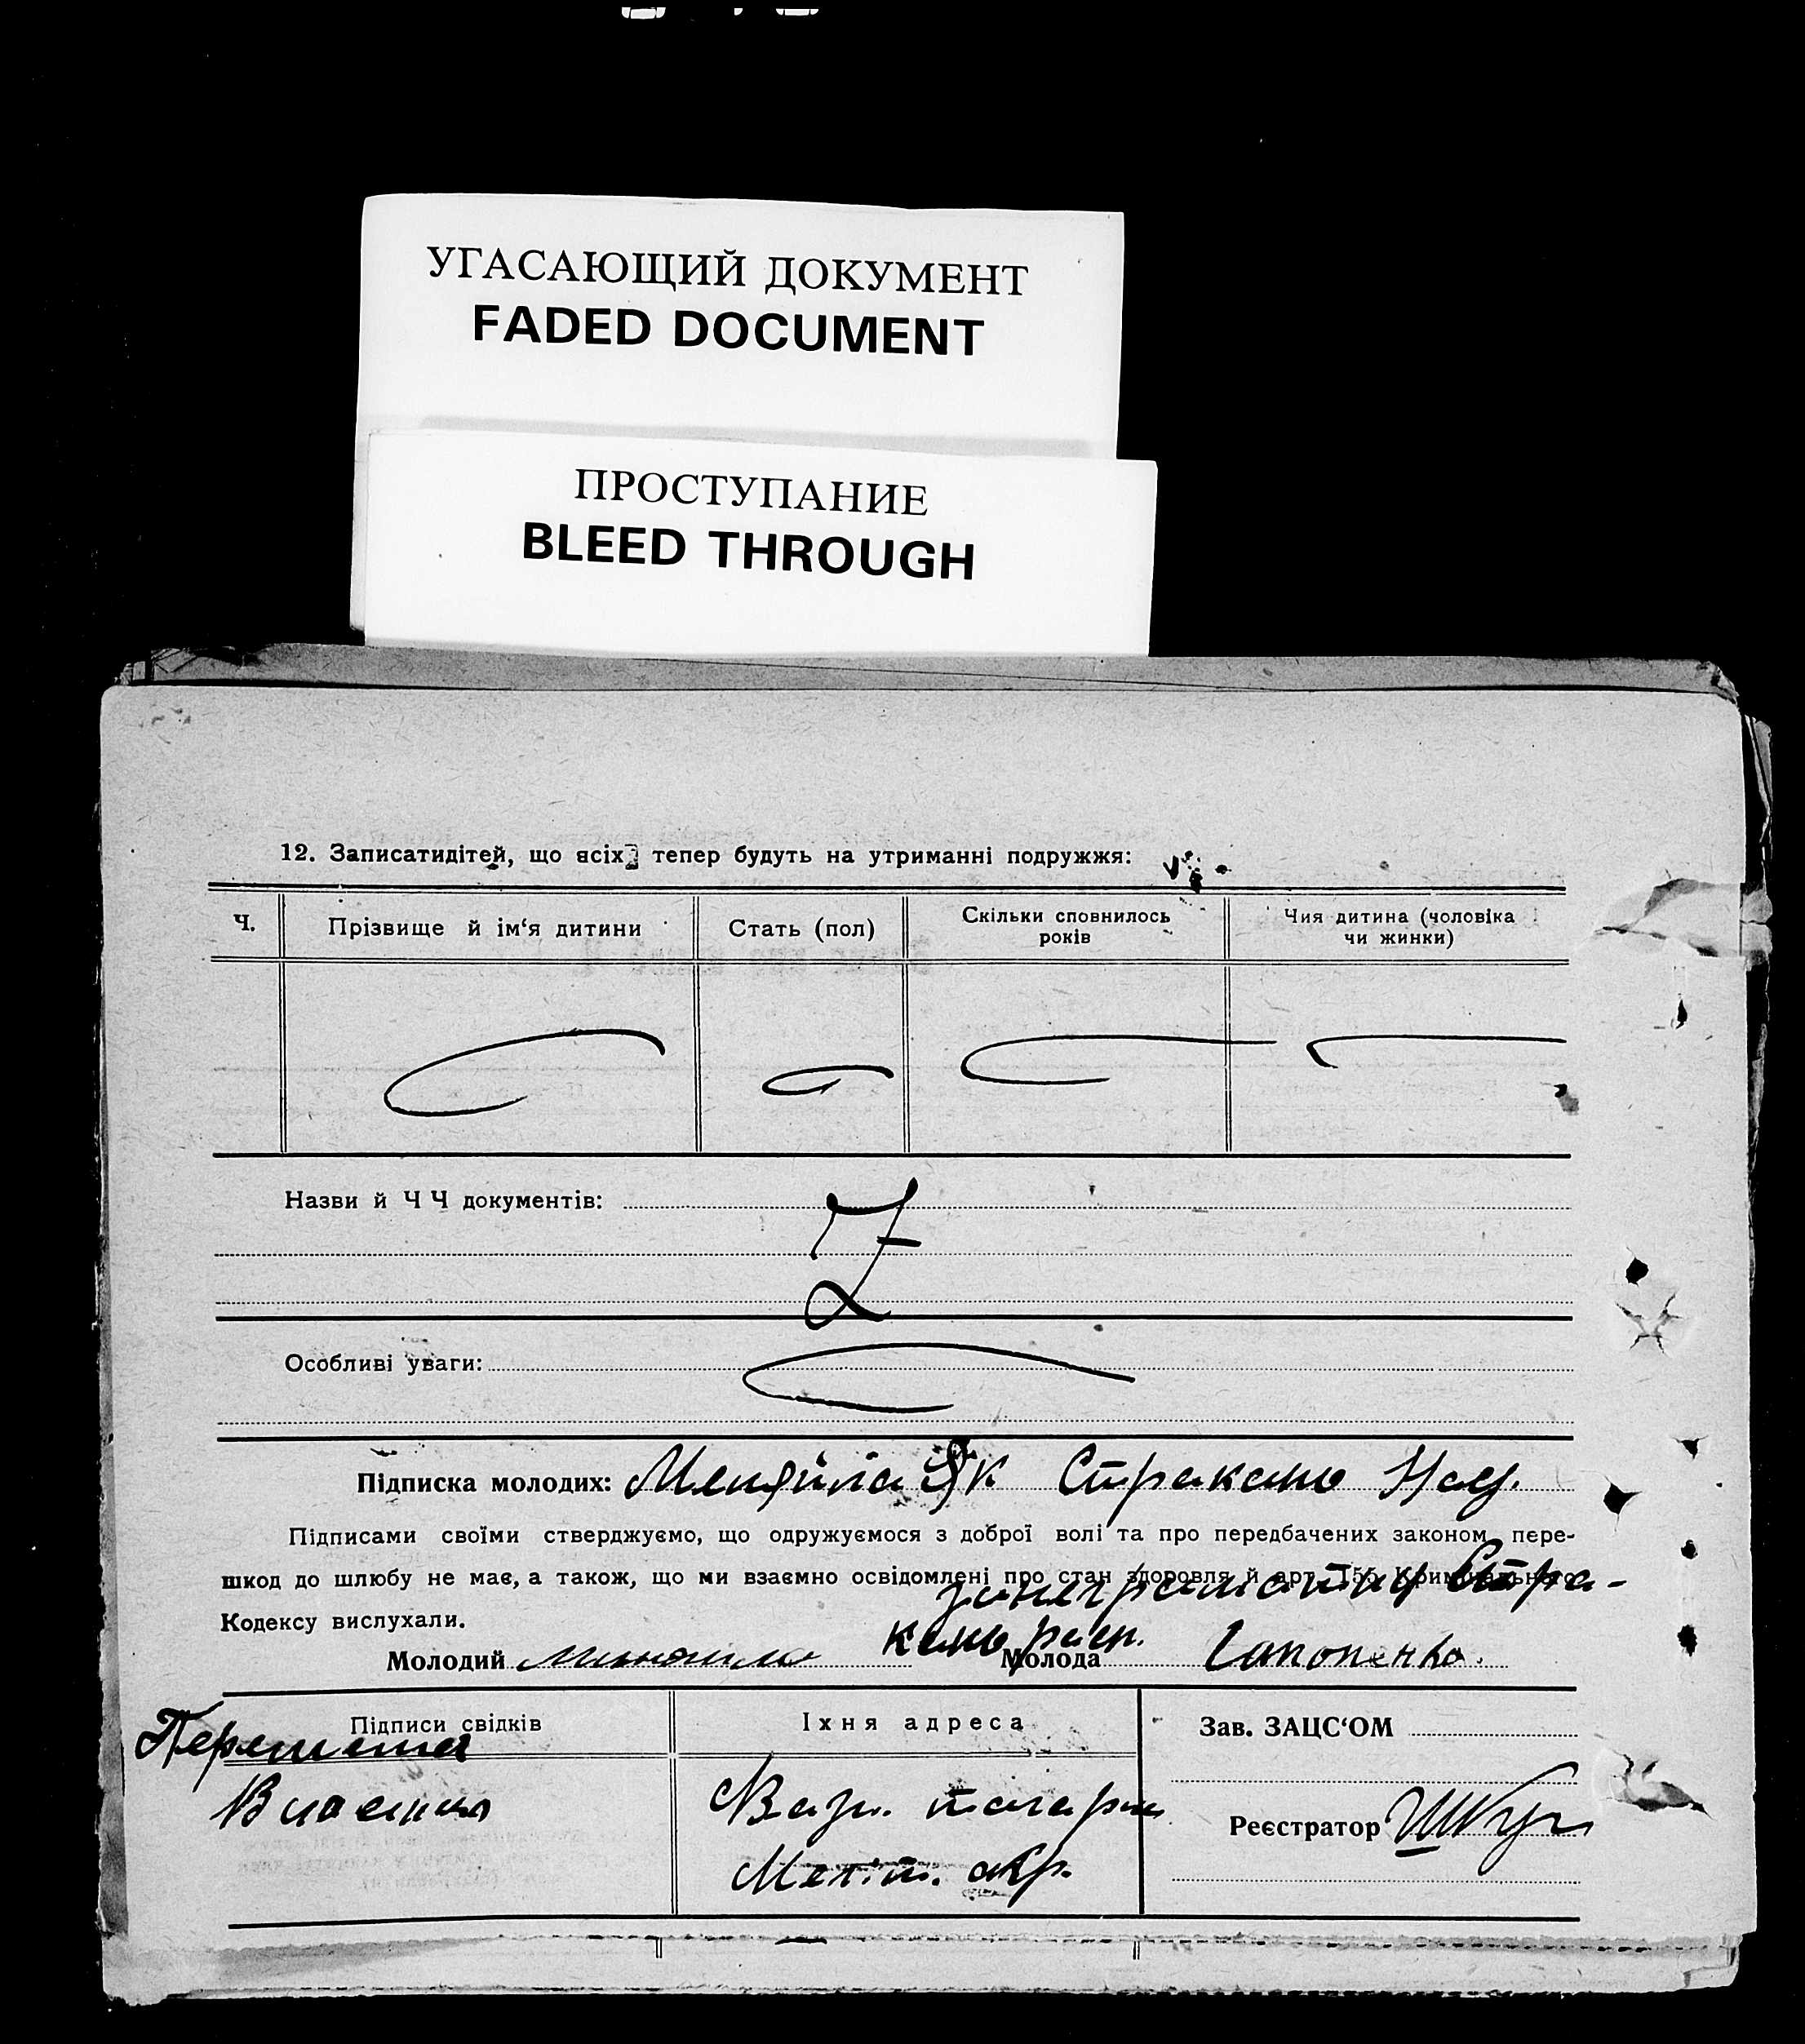 УГАСАЮЩИЙ ДОКУМЕНТ
FADED DOCUMENT
ПРОСТУПАНИЕ
BLEED THROUGH
12. Записатидітей, що всіх тепер будуть на утриманні подружжя:
Ч.
Прізвище й ім‘я дитини
Стать (пол)
Скільки сповнилось
років
Чия дитина (чоловіка
чи жинки)
Назви й Ч Ч документів:
Особливі уваги:
Підписка молодих: Меняйла Як Стракань Над.
Підписами своїми стверджуємо, що одружуємося з доброї волі та про передбачених законом пере-
шкод до шлюбу не має, а також, що ми взаємно освідомлені про стан здоровля й арт. 155 Кримінального
Кодексу вислухали.
за неграмотну Стра-
кань расп.
Молодий
Молода Гапоненко.
Підписи свідків
Їхня адреса
Зав. ЗАЦС‘ОМ
Реєстратор
Меліт. окр.